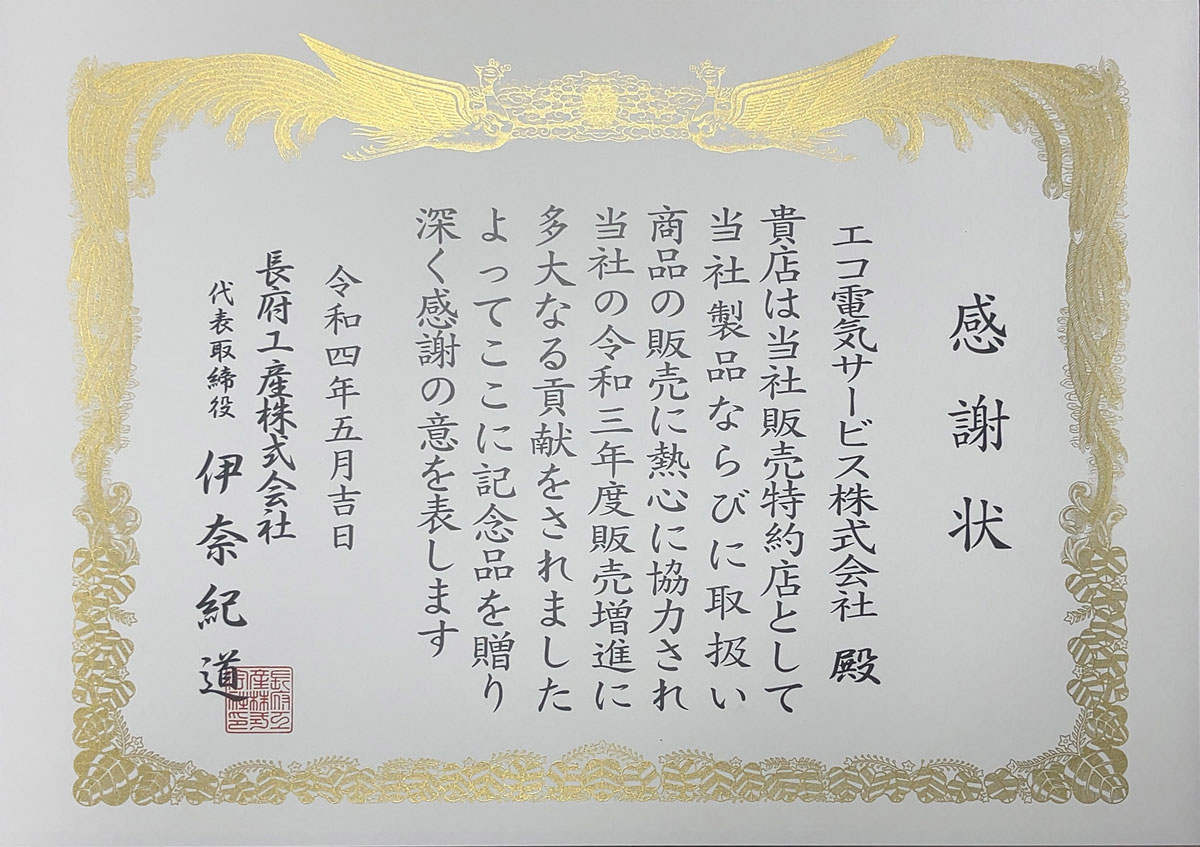 感謝状
エコ電気サービス株式会社 殿
貴店は当社販売特約店として
当社製品ならびに取扱い
商品の販売に熱心に協力され
当社の令和三年度販売増進に
多大なる貢献をされました
よってここに記念品を贈り
深く感謝の意を表します
令和四年五月吉日
長府工産株式会社
代表取締役 伊奈紀道
長府工産株式会社印